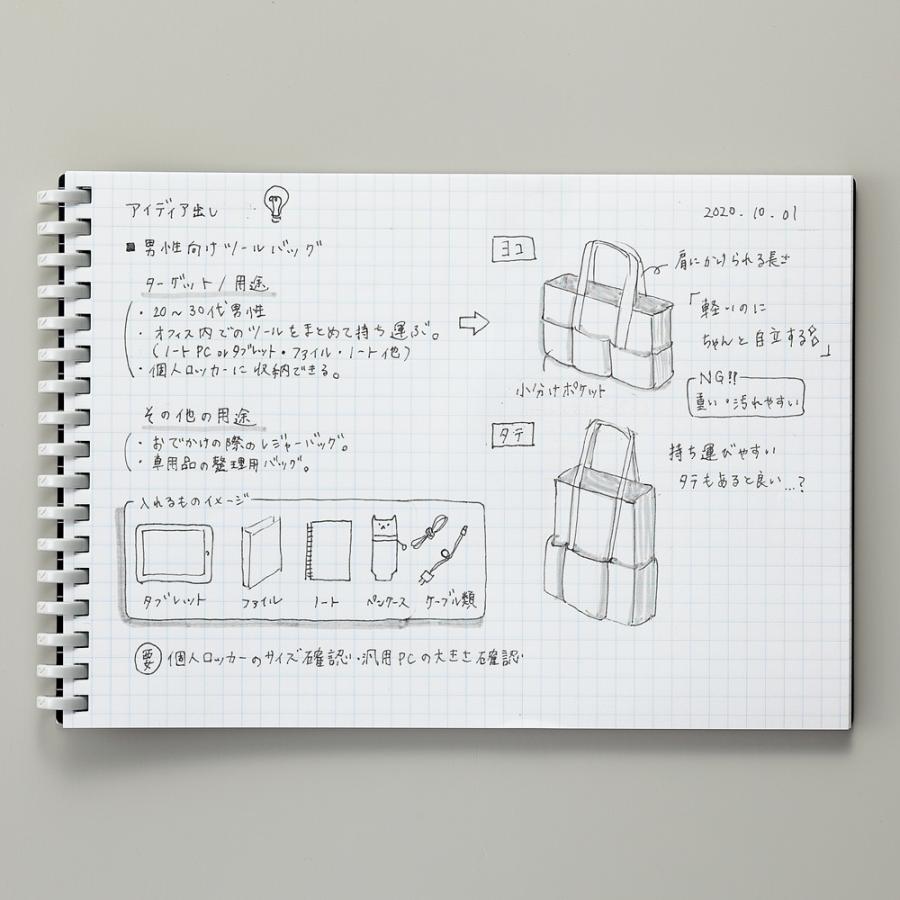 アイディア出し
2020.10.01
■ 男性向けツールバッグ
ターゲット/用途
・20～30代男性
・オフィス内でのツールをまとめて持ち運ぶ。
(ノートPC orタブレット・ファイル・ノート他)
・個人ロッカーに収納できる。
その他の用途
・おでかけの際のレジャーバッグ。
・車用品の整理用バッグ。
入れるものイメージ
タブレット
ファイル
ノート
ペンケース
ケーブル類
要 個人ロッカーのサイズ確認・汎用PCの大きさ確認
ヨコ
肩にかけられる長さ
「軽いのに
ちゃんと自立する」
小分けポケット
NG!!
重い・汚れやすい
タテ
持ち運びやすい
タテもあると良い…?